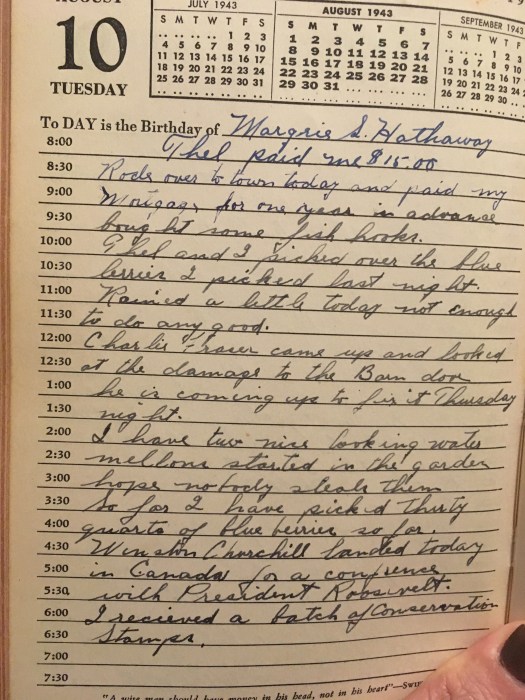 AUGUST
10
TUESDAY
JULY 1943
S M T W T F S
.. .. .. .. 1 2 3
4 5 6 7 8 9 10
11 12 13 14 15 16 17
18 19 20 21 22 23 24
25 26 27 28 29 30 31
AUGUST 1943
S M T W T F S
1 2 3 4 5 6 7
8 9 10 11 12 13 14
15 16 17 18 19 20 21
22 23 24 25 26 27 28
29 30 31 .. .. .. ..
SEPTEMBER 1943
S M T W T F
.. .. .. 1 2 3
5 6 7 8 9 10
12 13 14 15 16 17
19 20 21 22 23 24
26 27 28 29 30 ..
To DAY is the Birthday of Margrie S. Hathaway
8:00 Thel paid me $15.00
8:30 Rode over to town today and paid my
9:00 Mortgage for one year in advance
9:30 bought some fish hooks.
10:00 Thel and I picked over the blue
10:30 berries I picked last night.
11:00 Rained a little today not enough
11:30 to do any good.
12:00 Charlie Fraser came up and looked
12:30 at the damage to the Barn door
1:00 he is coming up to fix it Thursday
1:30 night.
2:00 I have two nice looking water
2:30 mellons started in the garden
3:00 hope nobody steals them
3:30 So far I have picked thirty
4:00 quarts of blue berries so far.
4:30 Winston Churchill landed today
5:00 in Canada for a confrence
5:30 with President Roosivelt.
6:00 I recieved a batch of Conservation
6:30 Stamps.
7:00
7:30
"A wise man should have money in his head, not in his heart"—Swift